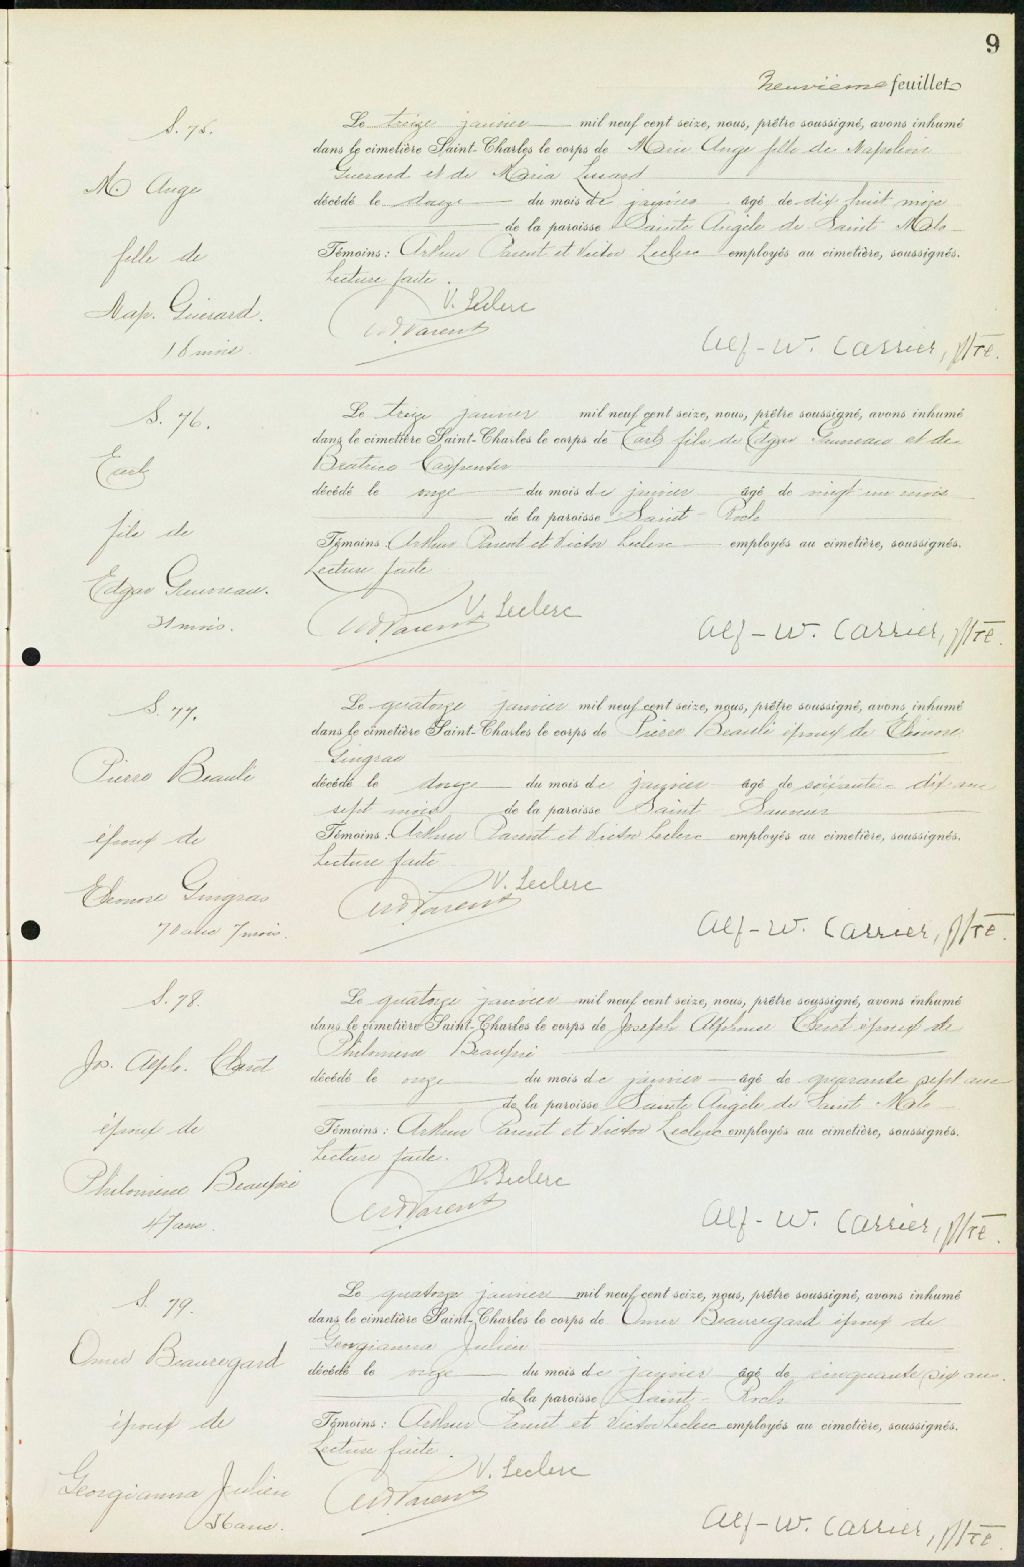 9
Neuvième feuillet
S. 75.
M. Ange
fille de
Nap. Guérard.
18 mois.
Le treize janvier mil neuf cent seize, nous, prêtre soussigné, avons inhumé
dans le cimetière Saint-Charles le corps de Marie Ange fille de Napoléon
Guérard et de Maria
décédé le douze du mois de janvier âgé de dix huit mois
de la paroisse Sainte Angèle de Saint Malo
Témoins : Arthur Parent et Victor Leclerc employés au cimetière, soussignés.
Lecture faite.
V. Leclerc
Ard. Parent
Alf-W. Carrier, ptre.
S. 76.
Earl
fils de
Edgar
21 mois.
Le treize janvier mil neuf cent seize, nous, prêtre soussigné, avons inhumé
dans le cimetière Saint-Charles le corps de Earl fils de Edgar et de
Béatrice Carpenter
décédé le onze du mois de janvier âgé de vingt un mois
de la paroisse Saint-Roch
Témoins : Arthur Parent et Victor Leclerc employés au cimetière, soussignés.
Lecture faite
V. Leclerc
Ard. Parent
Alf-W. Carrier, ptre.
S. 77.
Pierre Beaulé
époux de
Eléonore Gingras
70 ans 7 mois.
Le quatorze janvier mil neuf cent seize, nous, prêtre soussigné, avons inhumé
dans le cimetière Saint-Charles le corps de Pierre Beaulé époux de Eléonore
Gingras
décédé le douze du mois de janvier âgé de soixante-dix ans
sept mois de la paroisse Saint Sauveur
Témoins : Arthur Parent et Victor Leclerc employés au cimetière, soussignés.
Lecture faite
V. Leclerc
Ard. Parent
Alf-W. Carrier, ptre.
S. 78.
Jos. Alph. Huot
époux de
Philomène Beaupré
47 ans.
Le quatorze janvier mil neuf cent seize, nous, prêtre soussigné, avons inhumé
dans le cimetière Saint-Charles le corps de Joseph Alphonse Huot époux de
Philomène Beaupré
décédé le onze du mois de janvier âgé de quarante sept ans
de la paroisse Sainte Angèle de Saint Malo
Témoins : Arthur Parent et Victor Leclerc employés au cimetière, soussignés.
Lecture faite.
V. Leclerc
Ard. Parent
Alf-W. Carrier, ptre.
S. 79.
Omer Beauregard
époux de
Georgianna Julien
56 ans.
Le quatorze janvier mil neuf cent seize, nous, prêtre soussigné, avons inhumé
dans le cimetière Saint-Charles le corps de Omer Beauregard époux de
Georgianna Julien
décédé le onze du mois de janvier âgé de cinquante six ans.
de la paroisse Saint-Roch
Témoins : Arthur Parent et Victor Leclerc employés au cimetière, soussignés.
Lecture faite.
V. Leclerc
Ard. Parent
Alf-W. Carrier, ptre.